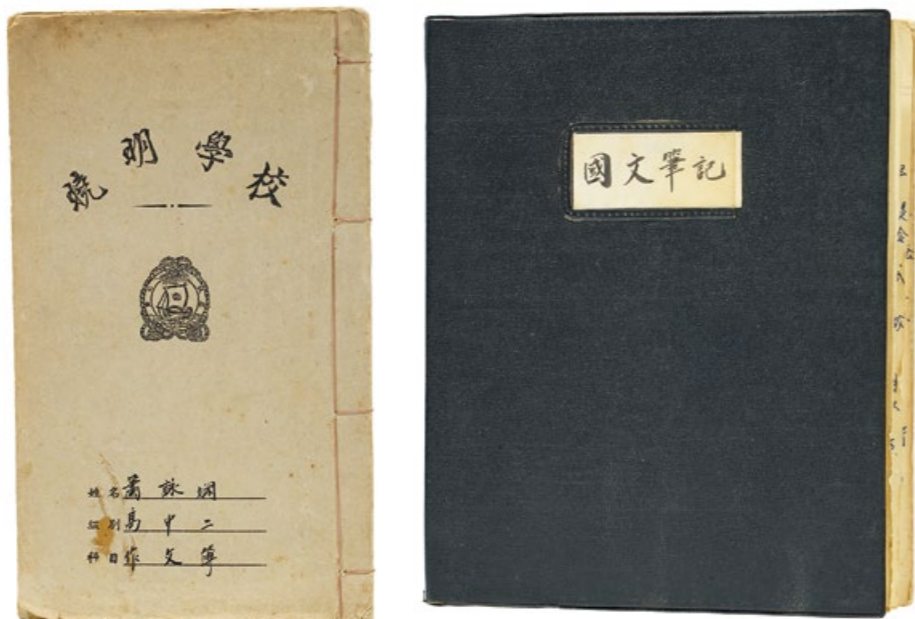 曉明學校
姓名 蕭詠嫻
級別 高中二
科目 作文簿
國文筆記